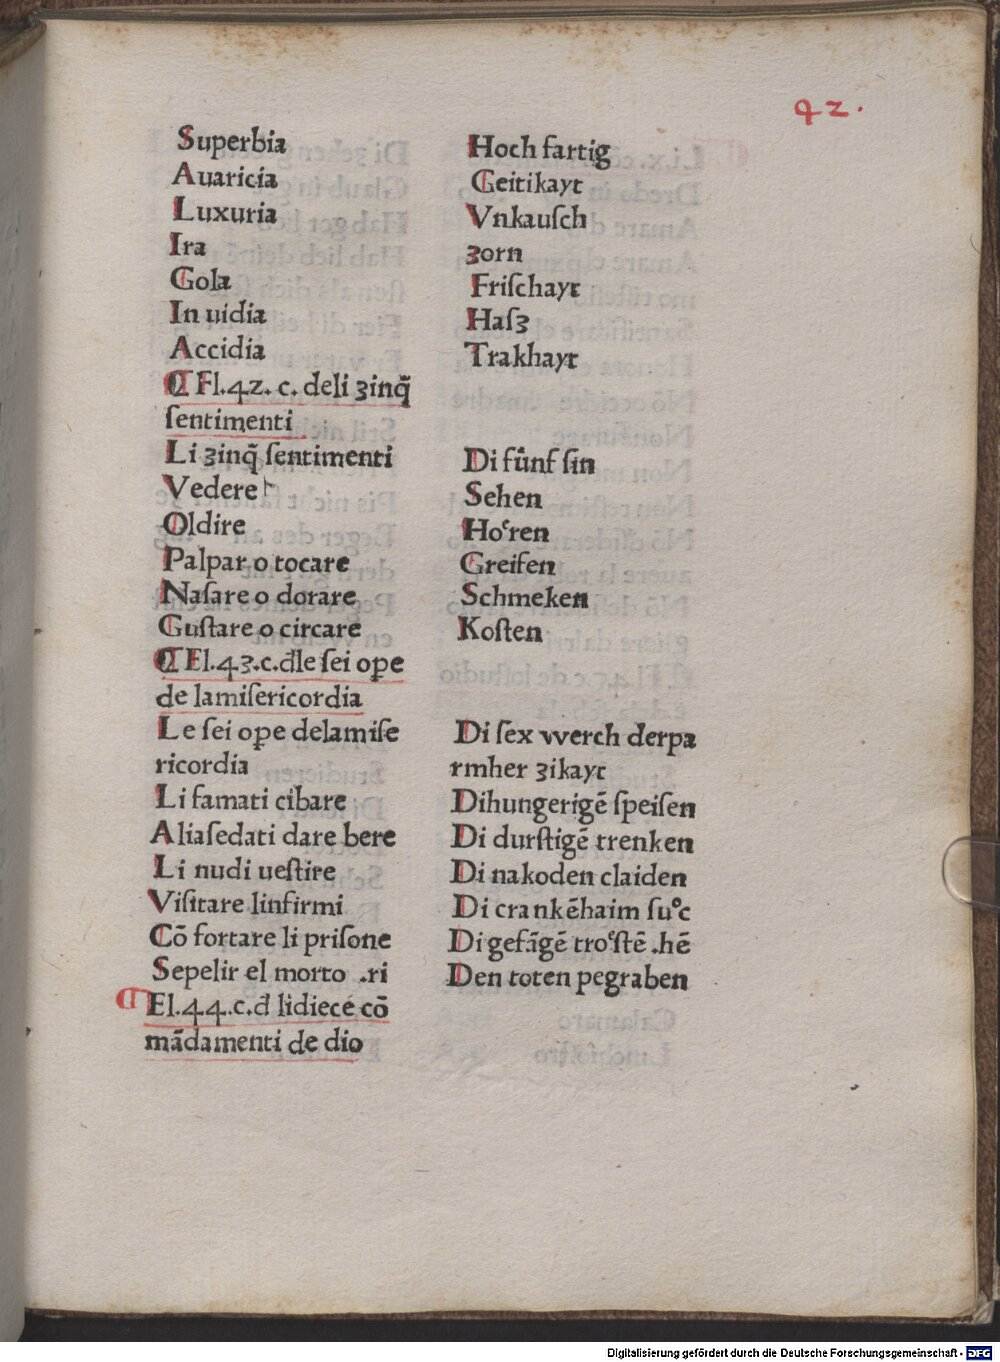 42.
Superbia Hoch fartig
Auaricia Geitikayt
Luxuria Vnkauſch
Ira ʒorn
Gola Friſchayt
In uidia Haſʒ
Accidia Trakhayt
¶ El.42. c. deli ʒinq̃
ſentimenti
Li ʒinq̃ ſentimenti Di fünf ſin
Vedere Sehen
Oldire Hoͤren
Palpar o tocare Greifen
Naſare o dorare Schmeken
Guſtare o circare Koſten
¶ El.43.c.đle ſei ope
de lamiſericordia
Le ſei ope delamiſe Di ſex vverch derpa
ricordia rmher ʒikayt
Li famati cibare Dihungerigē ſpeiſen
Aliaſedati dare bere Di durſtigē trenken
Li nudi ueſtire Di nakoden claiden
Viſitare linfirmi Di crankēhaim ſuͦc
Cō fortare li priſone Di gefāgē troͤſtē .hē
Sepelir el morto .ri Den toten pegraben
¶ El.44.c.đ lidiece cō
mādamenti de dio
Digitalisierung gefördert durch die Deutsche Forschungsgemeinschaft - DFG